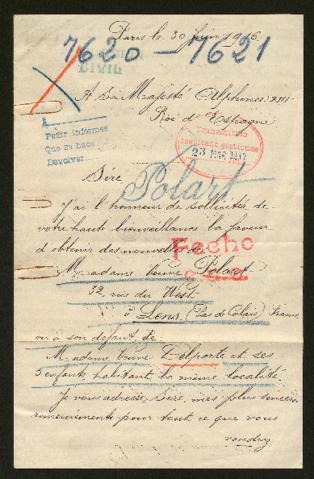 Paris le 30 juin 1916
7620 - 7621
CIVIL
A Sa Majesté Alphonse XIII
Roi d'Espagne
A
Pedir informes
Que se hace
Devolver
Transmitido
23 MAR 1917
Sire
Polart
J'ai l'honneur de solliciter de
votre haute bienveillance la faveur
d'obtenir des nouvelles de
Fecho
Madame Veuve Polart
32, rue du West
à Lens, (Pas de Calais) France
ou à son défaut de
Madame Veuve Delporte et ses
5 enfants habitant la même localité
Je vous adresse, Sire, mes plus sincères
remerciements pour tout ce que vous
voudrez